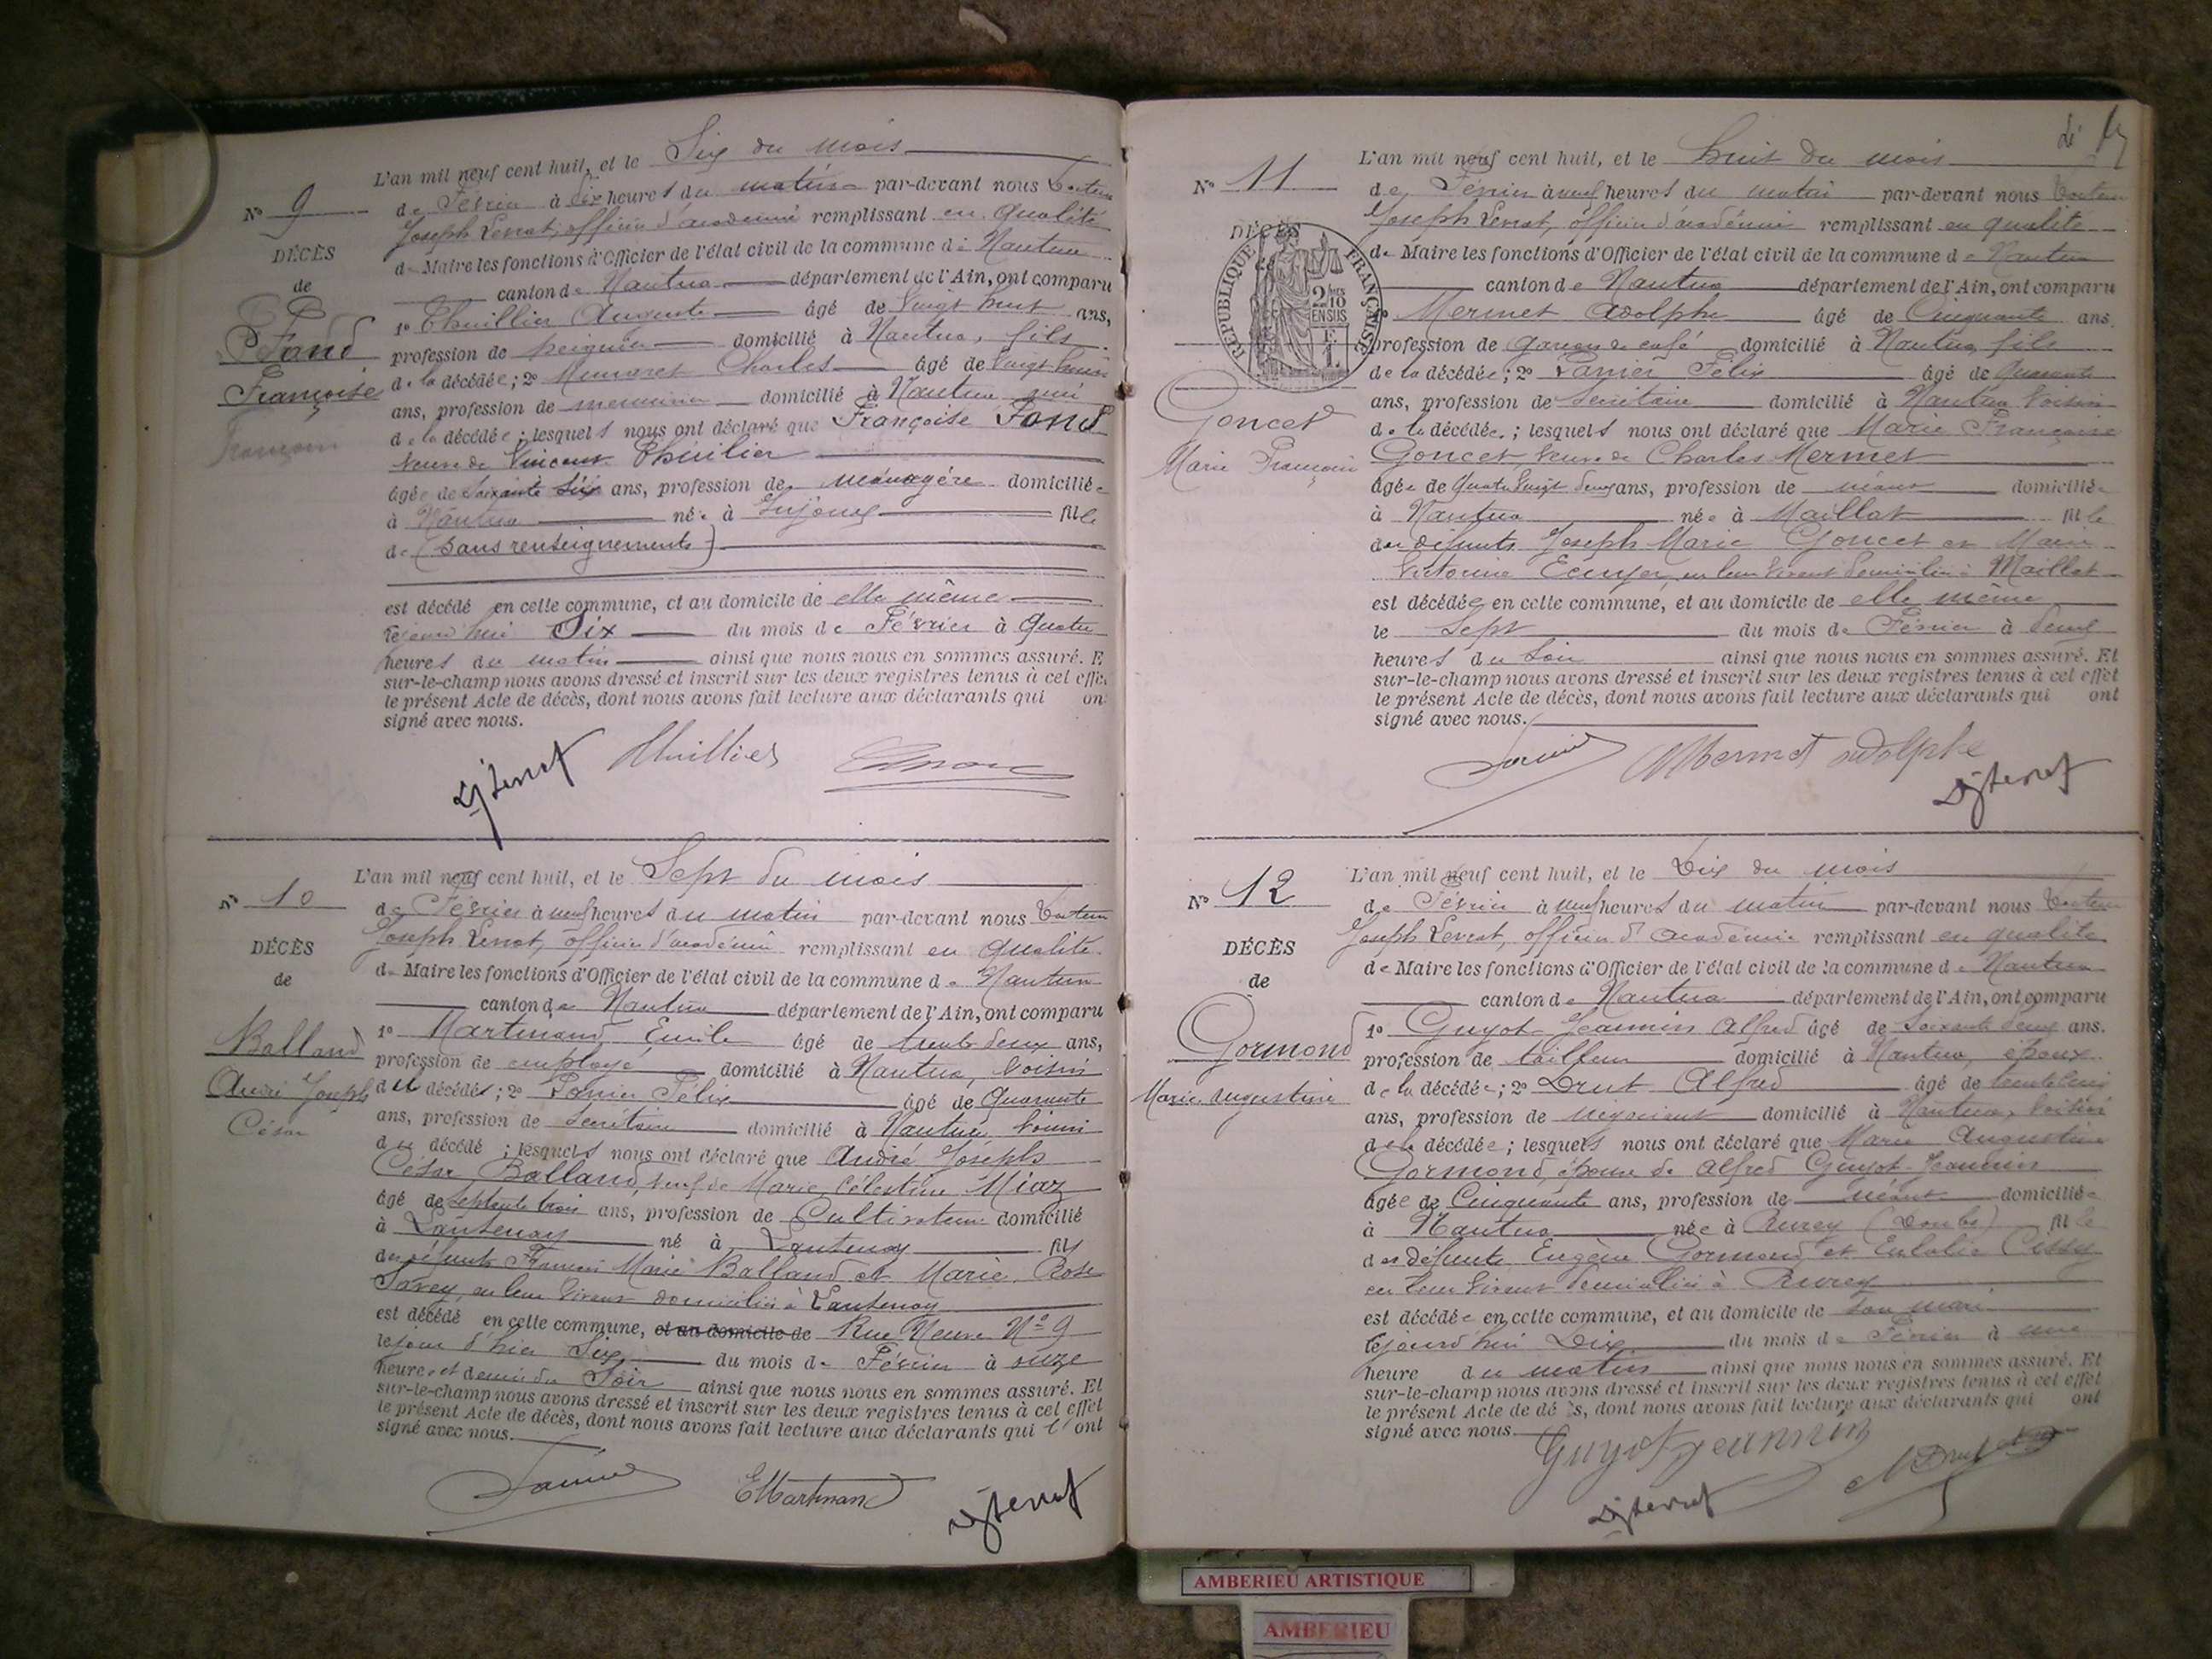 L'an mil neuf cent huit, et le Six du mois
N° 9
de Février à dix heures du matin par-devant nous Docteur
Joseph Levrat, officier d'académie remplissant en qualité
DÉCÈS
de Maire les fonctions d'Officier de l'état civil de la commune de Nantua
de
canton de Nantua département de l'Ain, ont comparu
1° Thuillier Auguste âgé de vingt huit ans,
Fand
profession de domicilié à Nantua, fils
Françoise
de la décédée; 2° Charles âgé de vingt
ans, profession de menuisier domicilié à Nantua
de la décédée; lesquels nous ont déclaré que Françoise Fond
veuve de Vincent
âgée de soixante six ans, profession de ménagère domiciliée
à Nantua née à fille
de (sans renseignements)
est décédé en cette commune, et au domicile de elle même
lejourd'hui Six du mois de Février à quatre
heures du matin ainsi que nous nous en sommes assuré. E
sur-le-champ nous avons dressé et inscrit sur les deux registres tenus à cet effe
le présent Acte de décès, dont nous avons fait lecture aux déclarants qui on
signé avec nous.
Thuillier
L'an mil neuf cent huit, et le Sept du mois
N° 10
de Février à neuf heures du matin par-devant nous Docteur
Joseph Levrat, officier d'académie remplissant en qualité
DÉCÈS
de Maire les fonctions d'Officier de l'état civil de la commune de Nantua
de
canton de Nantua département de l'Ain, ont comparu
1° Martinand, Emile âgé de trente deux ans,
Balland
profession de employé domicilié à Nantua, voisin
André Joseph
du décédés; 2° Félix âgé de quarante
César
ans, profession de secrétaire domicilié à Nantua voisin
du décédé; lesquels nous ont déclaré que André Joseph
César Balland, veuf de Marie Célestine Miaz
âgé de septante trois ans, profession de Cultivateur domicilié
à Lantenay né à Lantenay fils
des défunts François Marie Balland et Marie Rose
Savey, en leur vivant domiciliés à Lantenay
est décédé en cette commune, et au domicile de Rue Neuve N° 9
lejour d'hier Six du mois de Février à onze
heures et demie du Soir ainsi que nous nous en sommes assuré. Et
sur-le-champ nous avons dressé et inscrit sur les deux registres tenus à cet effet
le présent Acte de décès, dont nous avons fait lecture aux déclarants qui l'ont
signé avec nous.
EMartinand
L'an mil neuf cent huit, et le huit du mois
N° 11
de Février à neuf heures du matin par-devant nous Docteur
Joseph Levrat, officier d'académie remplissant en qualité
DÉCÈS
RÉPUBLIQUE FRANÇAISE
2/10 EN SUS
de Maire les fonctions d'Officier de l'état civil de la commune de Nantua
canton de Nantua département de l'Ain, ont comparu
Mermet Adolphe âgé de Cinquante ans
profession de garçon de café domicilié à Nantua fils
de la décédée; 2° Félix âgé de quarante
ans, profession de secrétaire domicilié à Nantua voisin
Goncet
de la décédée; lesquels nous ont déclaré que Marie Françoise
Marie Françoise
Goncet veuve de Charles Mermet
âgée de quatre vingt deux ans, profession de néant domiciliée
à Nantua née à Maillat fille
des défunts Joseph Marie Goncet et Marie
Victorine Ecuyer, en leur vivant domiciliés à Maillat
est décédée en cette commune, et au domicile de elle même
le Sept du mois de Février à deux
heures du soir ainsi que nous nous en sommes assuré. Et
sur-le-champ nous avons dressé et inscrit sur les deux registres tenus à cet effet
le présent Acte de décès, dont nous avons fait lecture aux déclarants qui ont
signé avec nous.
Mermet adolphe
L'an mil neuf cent huit, et le Dix du mois
N° 12
de Février à neuf heures du matin par-devant nous Docteur
Joseph Levrat, officier d'académie remplissant en qualité
DÉCÈS
de Maire les fonctions d'Officier de l'état civil de la commune de Nantua
de
canton de Nantua département de l'Ain, ont comparu
1° Guyot-Jeannin Alfred âgé de soixante deux ans.
Gormond
profession de tailleur domicilié à Nantua, époux
Marie Augustine
de la décédée; 2° Drut Alfred âgé de
ans, profession de négociant domicilié à Nantua, voisin
de la décédée; lesquels nous ont déclaré que Marie Augustine
Gormond, épouse de Alfred Guyot-Jeannin
âgée de Cinquante ans, profession de néant domiciliée
à Nantua née à (Doubs) fille
des défunts Eugène Gormond et Eulalie
en leur vivant domiciliés à
est décédée en cette commune, et au domicile de son mari
lejourd'hui Dix du mois de Février à une
heure du matin ainsi que nous nous en sommes assuré. Et
sur-le-champ nous avons dressé et inscrit sur les deux registres tenus à cet effet
le présent Acte de dé s, dont nous avons fait lecture aux déclarants qui ont
signé avec nous.
Guyot jeannin
Drut
AMBERIEU ARTISTIQUE
AMBERIEU